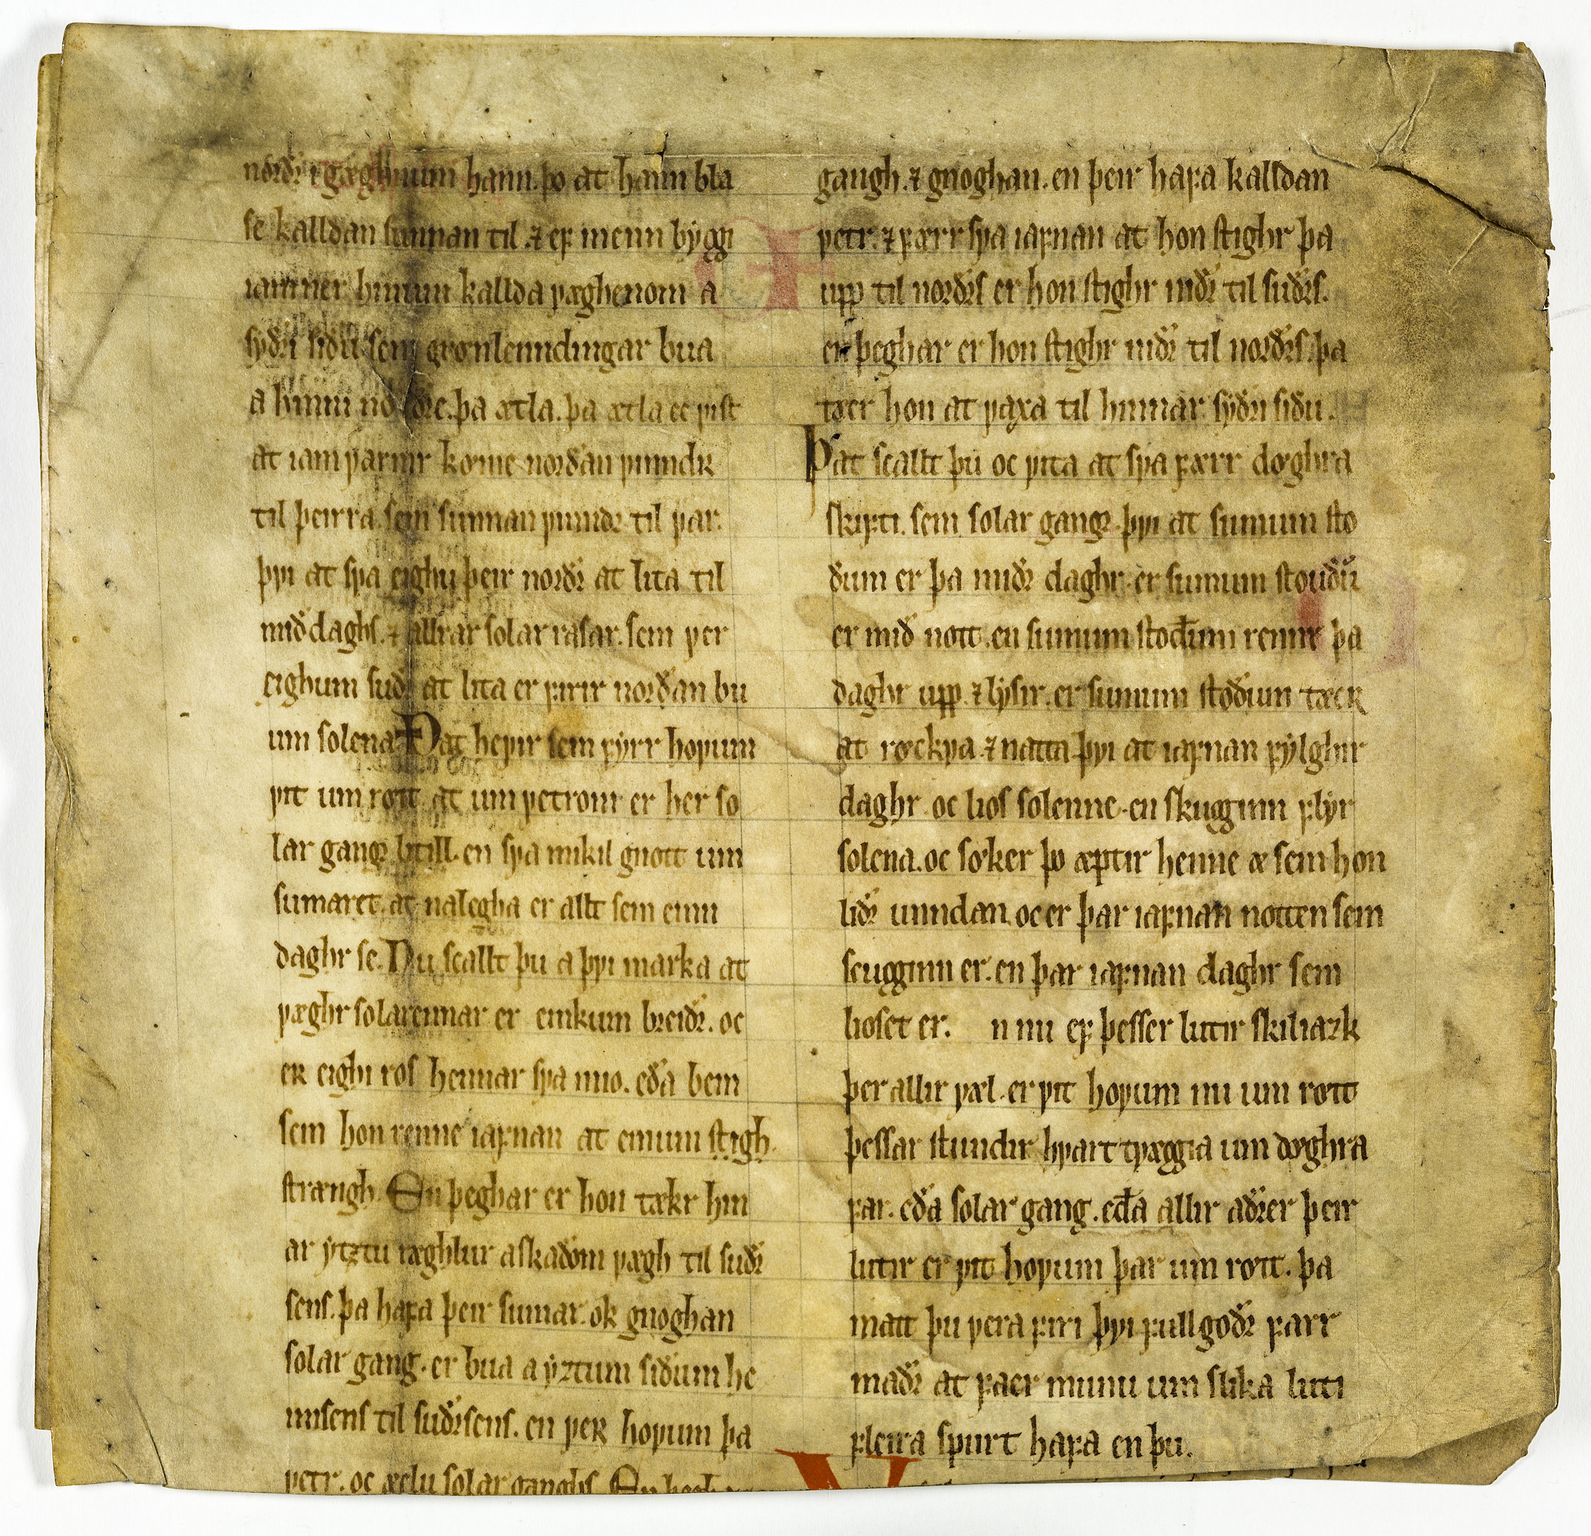 norðr vægh⸌inum hann. þo at hann bla
se kalldan sunnan til. ⁊ ef menn byggi
iamner hinum kallda væghenom a
syðri siðu. sem grønlenndingar bua
a hinni nørðre. þa ætla. þa ætla ec vist
at iamvarmr kome norðan vinndr
til þeirra. sem sunnan vindr til var.
þvi at sva eighu þeir norðr at lita til
miðdaghs. ⁊ allrar solar rasar. sem ver
eighum suðr at lita er firir norðan bu
um solena. Þat hefir sem fyrr hofum
vit um rœtt. at um vetrom er her so
lar gangr litill. en sva mikil gnott um
sumaret. at nalegha er allt sem einn
daghr se. Nu scallt þu a þvi marka at
væghr solarennar er einkum breiðr. oc
er eighi ros hennar sva mio. eða bein
sem hon renne iafnan at einum stigh
strængh. En þeghar er hon tækr hin
ar yztu ræghlur a skaðom vægh til suðr
sens. þa hafa þeir sumar. ok gnoghan
solar gang. er bua a yztum siðum he
imsens til suðrsens. en ver hofum þa
vetr. oc æclu solar ganghs. En þegh
gangh. ⁊ gnoghan. en þeir hafa kalldan
vetr. ⁊ færr sva iafnan at hon stighr þa
upp til norðrs er hon stighr niðr til suðrs.
en þeghar er hon stighr niðr til norðrs. þa
tæcr hon at vaxa til hinnar syðri siðu.
Þat scallt þu oc vita at sva færr dœghra
skifti. sem solar gangr. þvi at sumum sto
ðum er þa miðr daghr. er sumum stouðū
er mið nott. en sumum stoðum rennr þa
daghr upp. ⁊ lysir. er sumum stoðum tæcr
at røckva. ⁊ natta. þvi at iafnan fylghir
daghr oc lios solenne. en skugginn flyr
solena. oc sœker þo æptir henne æ sem hon
liðr unndan. oc er þar iafnan notten sem
scugginn er. en þar iafnan daghr sem
lioset er. n nu ef þesser lutir skiliazk
þer allir væl. er vit hofum nu um rœtt
þessar stundir hvart tvæggia um dœghra
far. eða solar gang. eða allir aðrer þeir
lutir er vit hofum þar um rœtt. þa
matt þu vera firi þvi full goðr farr
maðr at faer munu um slika luti
fleira spurt hafa en þu.